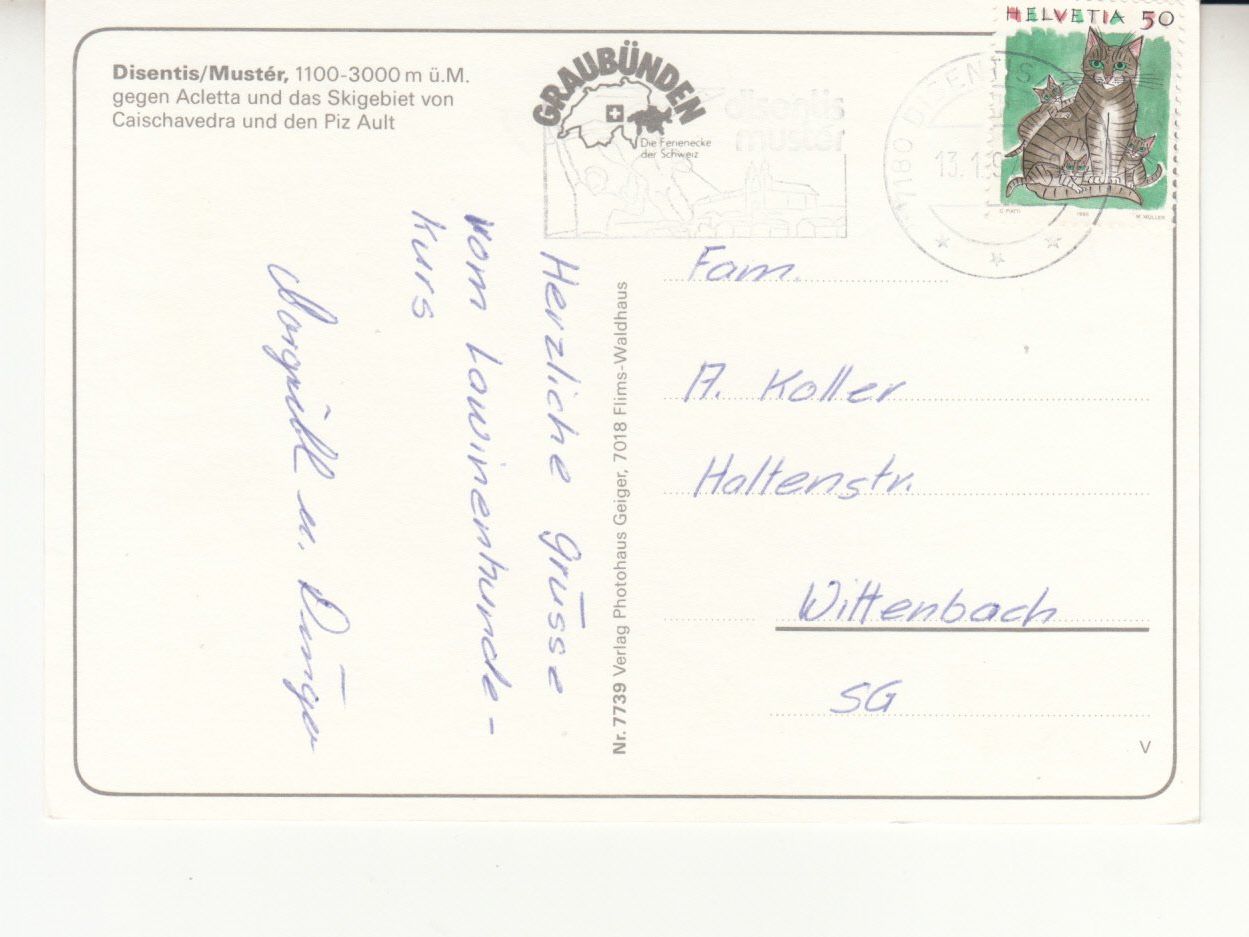 Disentis/Mustér, 1100-3000 m ü.M.
gegen Acletta und das Skigebiet von
Caischavedra und den Piz Ault
GRAUBÜNDEN
Die Ferienecke
der Schweiz
disentis
mustér
HELVETIA 50
1990
M. MÜLLER
7180 DISENTIS
13.1.9
Herzliche Grüsse
vom Lawinenhunde-
kurs
u.
Nr. 7739 Verlag Photohaus Geiger, 7018 Flims-Waldhaus
Fam.
A. Koller
Haltenstr.
Wittenbach
SG
V